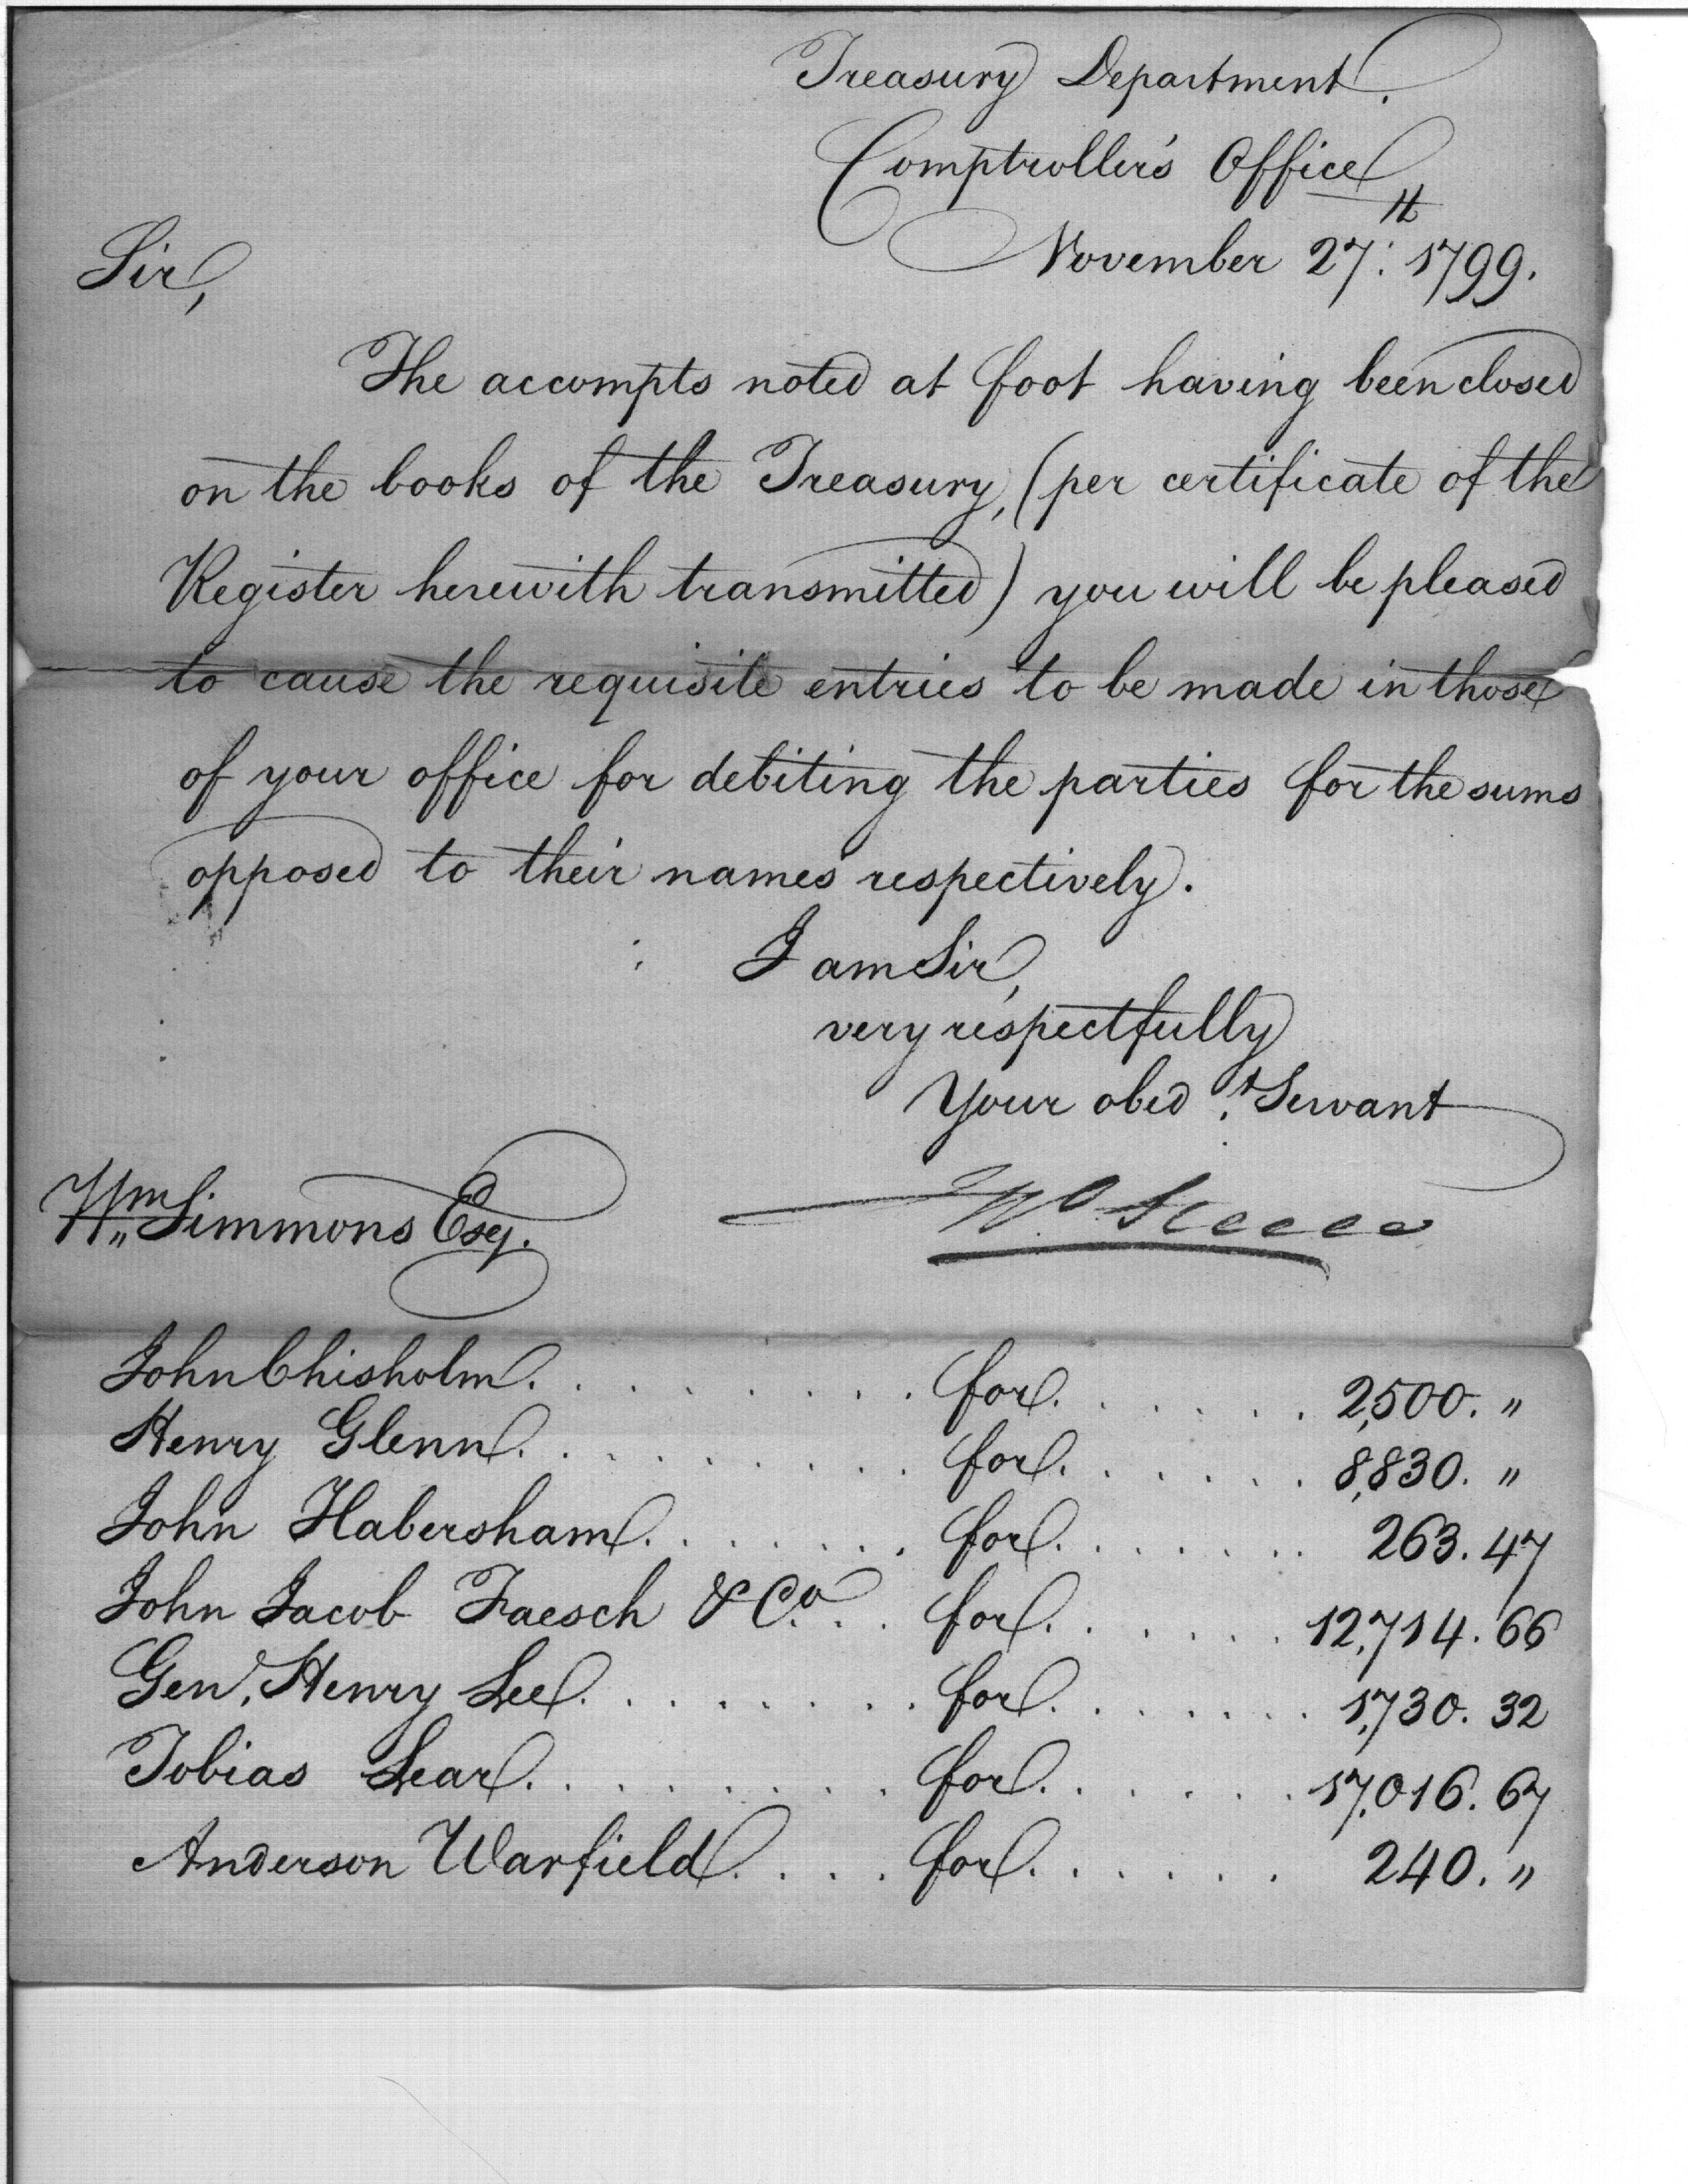 Treasury Department.
Comptroller's Office
November 27th: 1799.
Sir,
The accompts noted at foot having been closed
on the books of the Treasury, (per certificate of the
Register herewith transmitted) you will be pleased
to cause the requisite entries to be made in those
of your office for debiting the parties for the sums
opposed to their names respectively.
I am Sir,
very respectfully
Your obed.t Servant
Wm Simmons Esq.
Jno Steele
John Chisholm. . . . . . . . . for. . . . . . . 2,500. "
Henry Glenn. . . . . . . . . for. . . . . . . 8,830. "
John Habersham. . . . . . . for. . . . . . . 263. 47
John Jacob Faesch & Co. . . for. . . . . . . 12,714. 66
Gen.l Henry Lee. . . . . . . . . for. . . . . . . 1,730. 32
Tobias Lear. . . . . . . . . for. . . . . . . 17,016. 67
Anderson Warfield. . . . for. . . . . . . 240. "